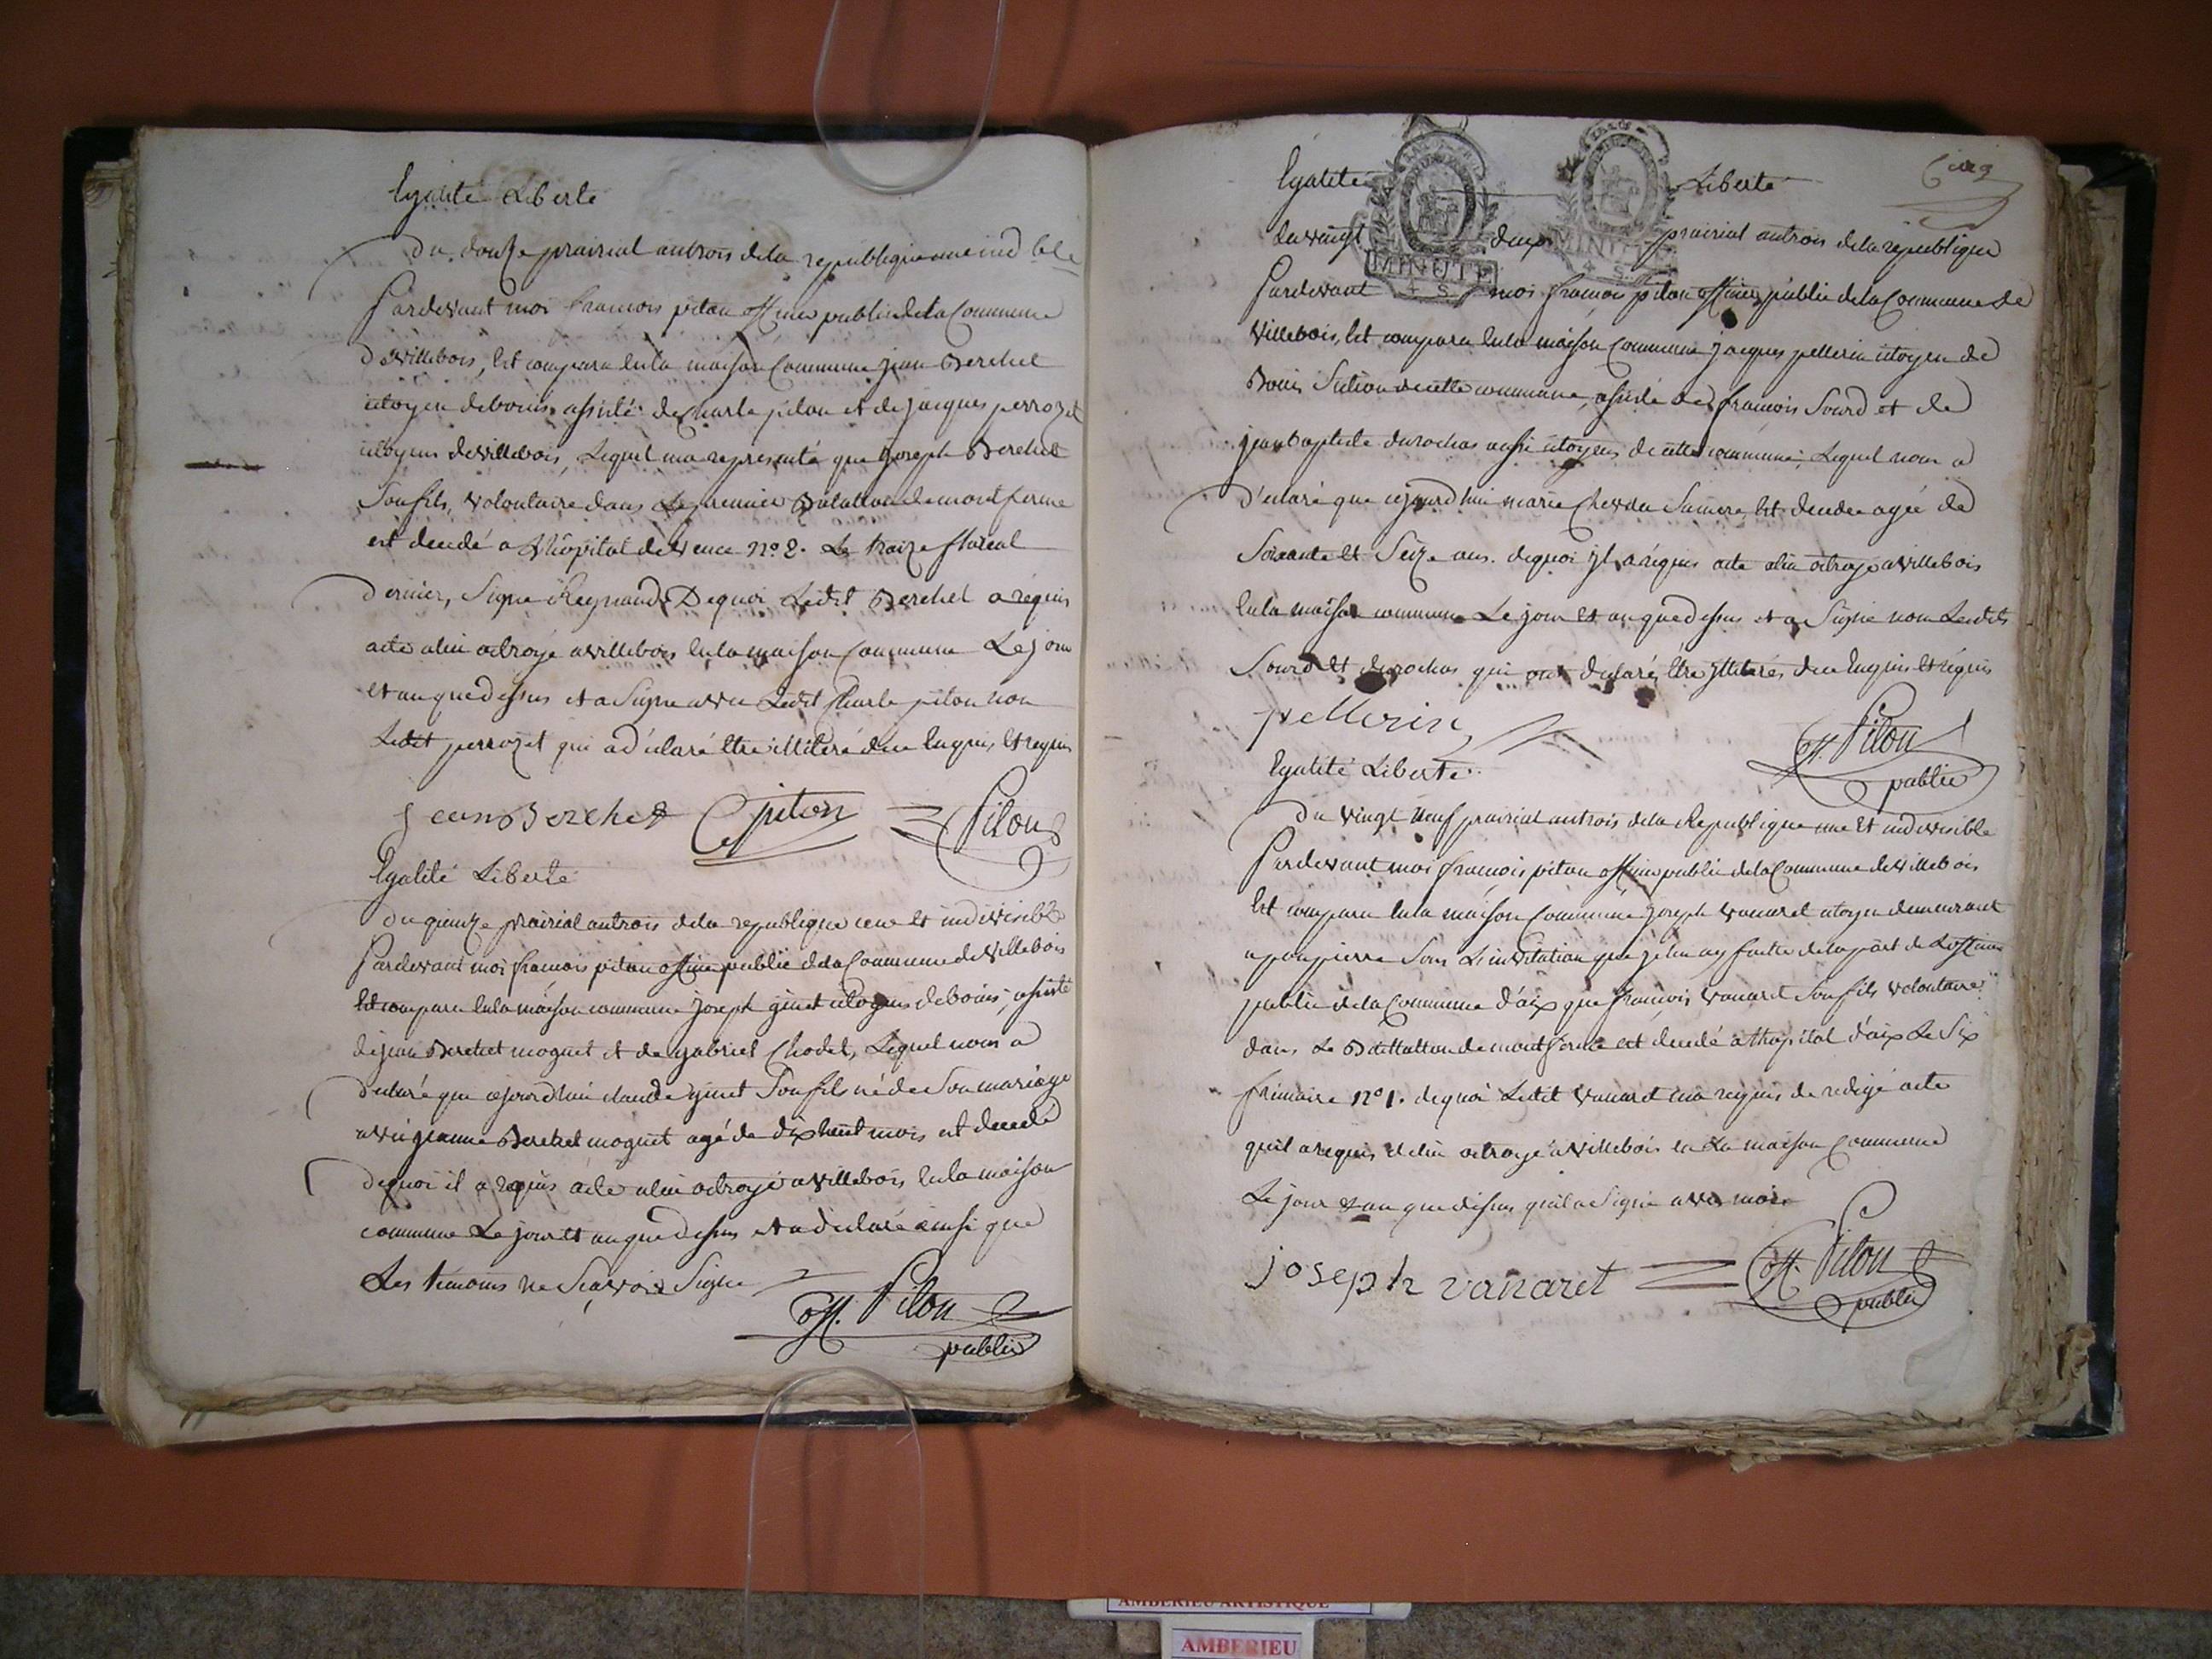 Egalité Liberté
Du douze prairial an trois de la republique une ind ble
Pardevant moi francois piton officier public de la Commune
de villebois, Est comparu En la maison Commune jean Berchet
citoyen de bouis assisté de Charle piton et de jacques perrozet
citoyens de villebois, Lequel ma representé que joseph Berchet
Son fils, volontaire dans Le premier Batallon de montferme
est decedé a Lhôpital de vence n° 2. Le treize floreal
Dernier, Signé Reynaud. De quoi Ledit Berchet a requis
acte a lui octroyé a villebois En la maison Commune Le jour
Et an que dessus et a Signé avec Ledit Charle piton non
Ledit perrozet qui a déclaré Etre illiteré de ce Enquis Et requis
jean Berchet C piton Piton
Egalité Liberté
Du quinze prairial an trois de la republique une Et indivisible
Pardevant moi francois piton officier public de la Commune de villebois
Est comparu En la maison commune joseph ginet citoyen de bouis, assisté
de jean Berchet moguet et de gabriel Chodet, Lequel nous a
declaré que cejourd'hui claude ginet Son fils né de Son mariage
avec jeanne Berchet moguet agé de dix huit mois est decedé
de quoi il a requis acte a lui octroyé a villebois En la maison
commune Le jour Et an que dessus et a declaré ainsi que
Les temoins ne Scavoir Signer
off. Piton
public
Cinq
Egalité Liberté
MINUTE
4 S
MINUTE
4 S
du vingt deux prairial an trois de la republique
Pardevant moi francois piton officier public de la Commune de
villebois, Est comparu En la maison Commune jacques pellerin citoyen de
Bouis Section de cette commune, assisté de francois Sourd et de
jean baptiste durochas aussi citoyens de cette commune, Lequel nous a
D'eclaré que cejourd'hui marie Chevdu Sa mere, Est decedee agée de
Soixante Et Seize ans. de quoi jl a requis acte a lui octroyé a villebois
En la maison commune Le jour Et an que dessus et a Signé non Lesdits
Sourd Et durochas qui ont declaré Etre jlliterés de ce Enquis Et requis
pellerin
off. Piton
public
Egalité Liberté
Du vingt neuf prairial an trois de la Republique une Et indivisible
Pardevant moi francois piton officier public de la Commune de villebois
Est comparu En la maison Commune joseph vanaret citoyen demeurant
a pompierre Sous L'invitation que je lui ay faitte de la part de Lofficier
public de la Commune d'aix que francois vanaret Son fils volontaire
dans Le Battallion de montferme est decedé a lhopital d'aix Le Six
frimaire n° 1. de quoi Ledit vanaret ma requis de redigé acte
qu'il a requis et a lui octroyé a villebois En La maison Commune
Le jour Et an que dessus qu'il a Signé avec moi
joseph vanaret off. Piton
public
AMBERIEU ARTISTIQUE
AMBERIEU